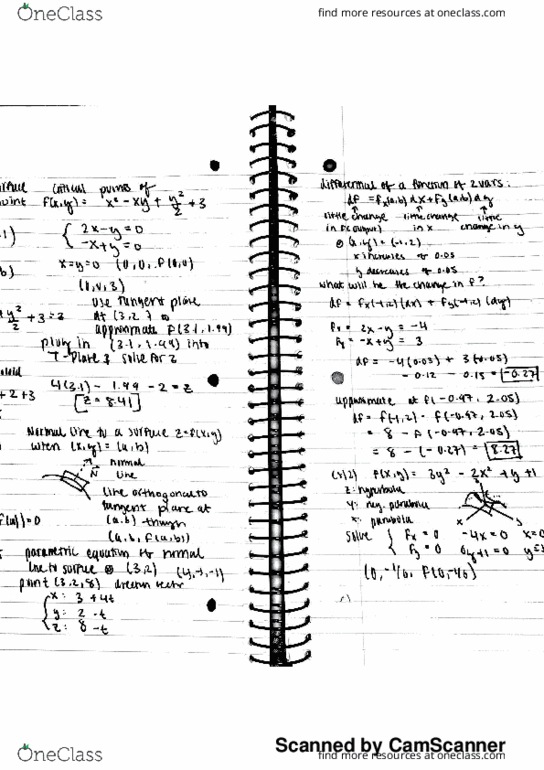 OneClass
find more resources at oneclass.com
critical points of
f(x,y) = x² - xy + y²/2 + 3
{ 2x - y = 0
-x + y = 0
x = y = 0 (0,0, f(0,0)
(0,0,3)
use tangent plane
at (3,2) to
approximate f(3.1, 1.99)
plug in (3.1, 1.99) into
T-Plane & solve for z
4(3.1) - 1.99 - 2 = z
[z = 8.41]
Normal line to a surface z = f(x,y)
when (x,y) = (a,b)
normal
N line
line orthogonal to
tangent plane at
(a,b) through
(a,b, f(a,b))
parametric equation of normal
line to surface @ (3,2) (4,-1,-1)
point (3,2,8) direction vector
{ x: 3 + 4t
y: 2 - t
z: 8 - t
differential of a function of 2 vars:
df = fx(a,b) dx + fy(a,b) dy
little change little change little
in f(output) in x change in y
@ (x,y) = (-1,2)
x increases of 0.03
y decreases of 0.05
what will be the change in f?
df = fx(-1,2)(dx) + fy(-1,2)(dy)
fx = 2x - y = -4
fy = -x + y = 3
df = -4(0.03) + 3(0.05)
= -0.12 - 0.15 = [-0.27]
approximate at f(-0.97, 2.05)
df = f(-1,2) - f(-0.97, 2.05)
= 8 - f(-0.97, 2.05)
= 8 - (-0.27) = [8.27]
f(x,y) = 3y² - 2x² + y + 1
z: hyperbola
y: neg. parabola
x: parabola
x y
solve { fx = 0 -4x = 0
fy = 0 6y + 1 = 0
(0, -1/6, f(0,-1/6)
Scanned by CamScanner
OneClass
find more resources at oneclass.com